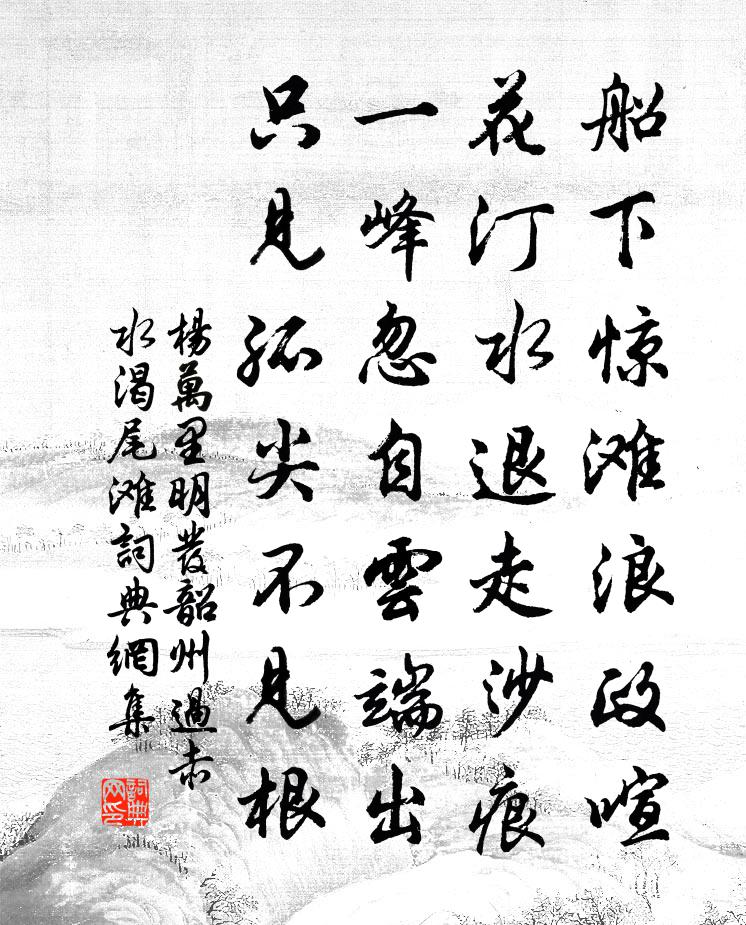 船下惊滩浪政喧
花汀水退走沙痕
一峰忽自雲端出
只見孤尖不見根
楊萬里明發韶州過赤
水渴尾滩詞典網集
詞典网印